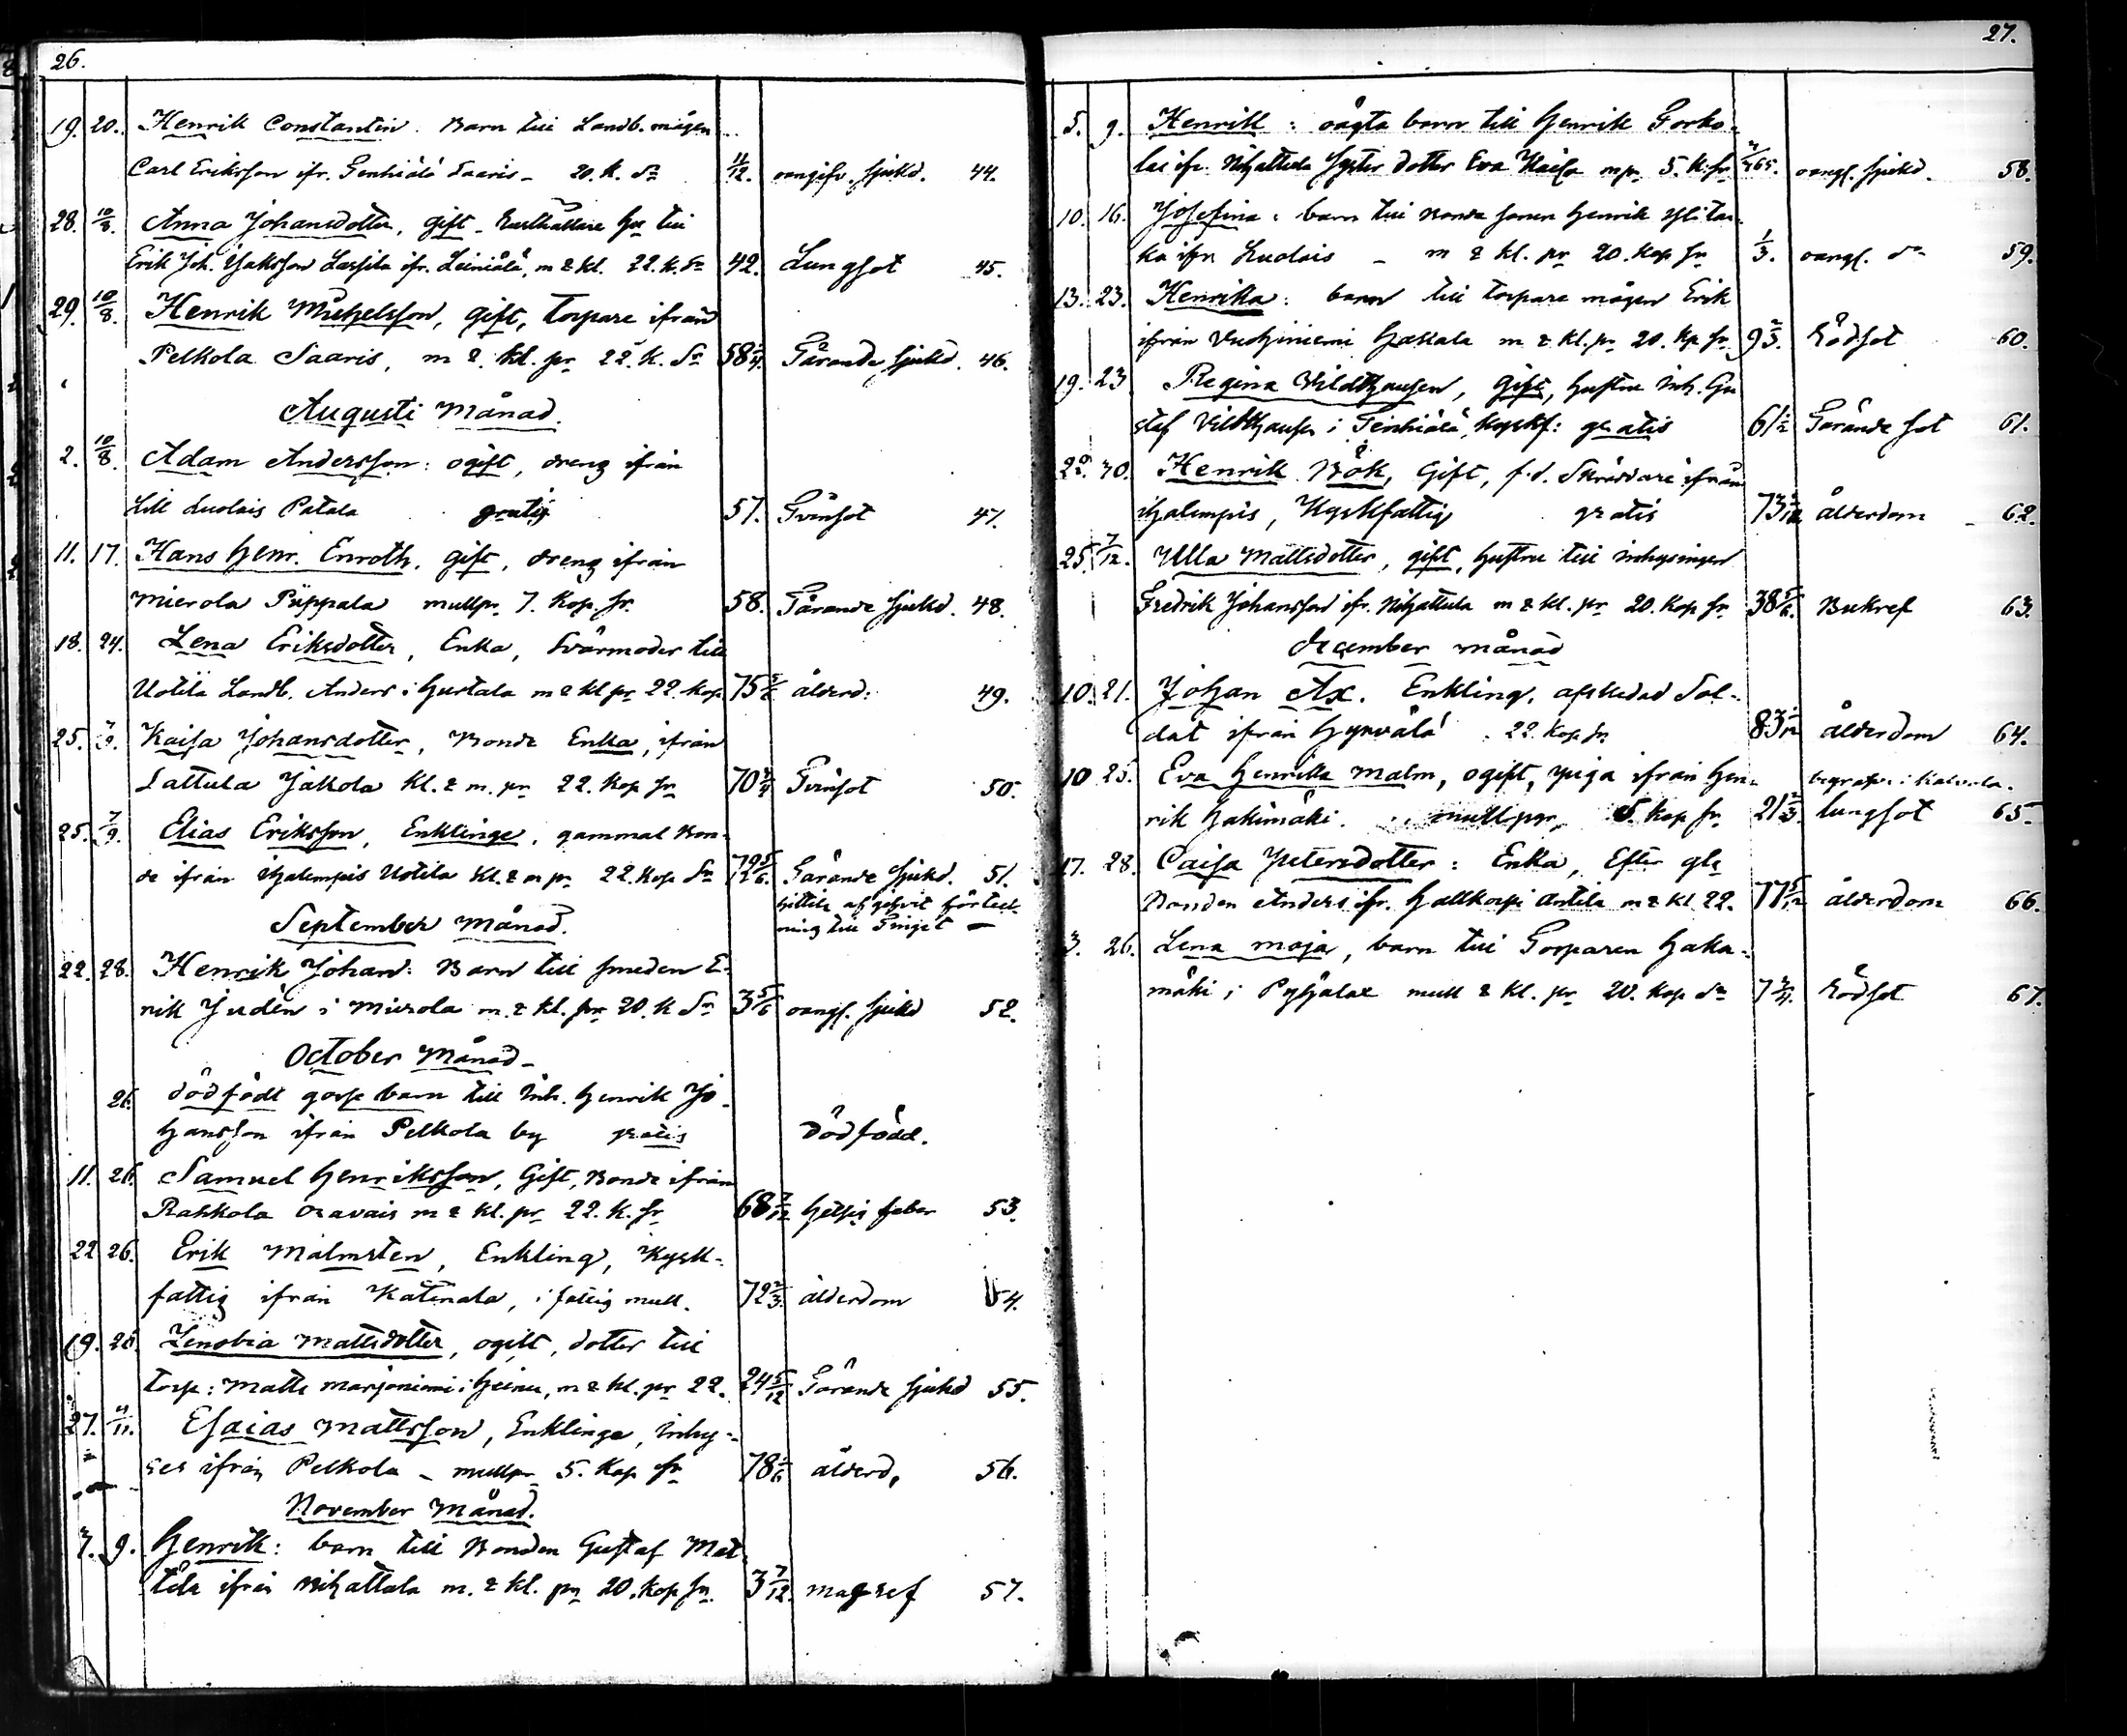 26.
19. 20. Henrik Constantin. Barn till Landb. mågen
Carl Eriksson ifr. Tenhiälä Saaris - 20. k. Sr 11/12. oangifv. sjukd. 44.
28. 10/8. Anna Johansdotter, gift - hu till
Erik Joh. Jaksson Lassila ifr. Leiniälä, m & kl. 22. k. Sr 42. Lungsot 45.
29. 10/8. Henrik Michelsson, gift, torpare ifrån
Pelkola Saaris, m & kl. pr 22. k. Sr 58 Tärande sjukd. 46.
Augusti Månad.
2. 10/8. Adam Andersson: ogift, dreng ifrån
Lill Luolais Patala gratis 57. Tvinsot 47.
11. 17. Hans Henr. Enroth, gift, dreng ifrån
Mierola Pippala mullpr. 7. Kop. Sr. 58. Tärande sjukd. 48.
18. 24. Lena Eriksdotter, Enka, Svärmoder till
Uotila Landb. Anders i Hurtala m & kl pr 22. Kop 75 ålderd: 49.
25. 7/9. Kaisa Johansdotter, Bonde Enka, ifrån
Lattula Jakola kl. & m. pr 22. Kop Sr 70 3/4 Tvinsot 50.
25. 7/9. Elias Eriksson, Enklinge, gammal Bon-
de ifrån Ihalempis Uotila kl. & m pr 22. Kop Sr 72 5/6. Tärande sjukd. 51.
hittils afgifvit förteck-
ning till Tinget -
September Månad.
22. 28. Henrik Johan: Barn till smeden E-
rik Judén i Mierola m. & kl. pr 20. k Sr 3 5/6 oangf. sjukd 52.
October Månad -
26. dödfödt gosse barn till Inh. Henrik Jo-
hansson ifrån Pelkola by gratis dödfödd.
11. 26. Samuel Henriksson, Gift, Bonde ifrån
Rahkola Oravais m & kl. pr 22. k. Sr 68 7/12 hetsig feber 53.
22 26. Erik Malmsten, Enkling, Kyrk-
fattig ifrån Katinala, i fattig mull. 72 2/3. ålderdom 54.
19. 26. Zenobia Mattsdotter, ogift, dotter till
torp: Matts Marjoniemi i Heinu, m & kl. pr 22. 24 5/12 Tärande sjukd 55.
27. 4/11. Esaias Mattsson, Enklinge, inhy-
ses ifrån Pelkola - mullpr 5. Kop Sr 78 1/6 ålderd, 56.
November Månad.
7. 9. Henrik: barn till Bonden Gustaf Mat-
tila ifrån Nihattala m. & kl. pr 20. kop Sr. 3 7/12. magref 57.
27.
5. 9. Henrik: oägta barn till Henrik Torko-
las ifr. Nihattula Syster dotter Eva Kaisa m pr 5. k: Sr oangf. sjukd. 58.
10. 16. Josefina: barn till Bonde sonen Henrik Ylita-
ka ifrn Luolais - m & kl. pr 20. Kop Sr 1/3. oangf. dn 59.
13. 23. Henrika: barn till torpare mågen Erik
ifrån Vuohiniemi Hakkala m & kl. pr 20. Kp Sr. 9 2/3. Rödsot 60.
19. 23 Regina Wildthausen, Gift, Hustru inh. Gu-
staf Vildthausen i Tenhiälä, kyrkf: gratis 61 1/2 Tärande sot 61.
22. 30. Henrik Böök, Gift, f.d. Skräddare ifrån
Ihalempis, Kyrkfattig gratis 73 ålderdom 62.
25. 7/12. Ulla Mattsdotter, gift, hustru till inhysingen
Fredrik Johansson ifr. Nihattula m & kl. pr 20. Kop Sr 38 5/6. Bukref 63.
December månad
10. 21. Johan Ax. Enkling, afskedad Sol-
dat ifrån Hyrvälä. 22. Kop Sr 83 ålderdom 64.
10 25. Eva Henrika Malm, ogift, piga ifrån Hen- begrafv. i Kalvola.
rik Hakimäki. mull pr 5. Kop Sr. 21 2/3. lungsot 65.
17. 28. Caisa Petersdotter: Enka, Efter gle
Bonden Anders ifr. Hallkorpi Antila m & kl 22. 77 5/12 ålderdom 66.
3. 26. Lena Maja, barn till Torparen Haka-
mäki i Pyhälax mull & kl. pr 20. Kop Sr 7 3/4. Rödsot 67.